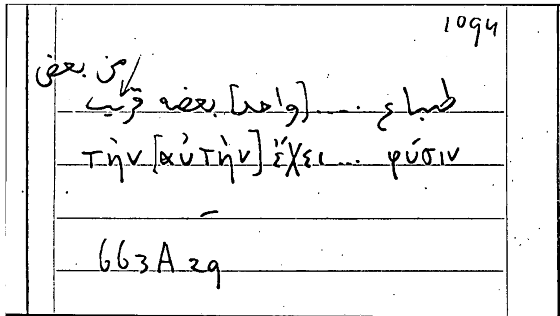 1094
من بعض
طباع .... [واحد] بعضه قريب
τὴν [αὐτὴν] ἔχει ... φύσιν
663A29